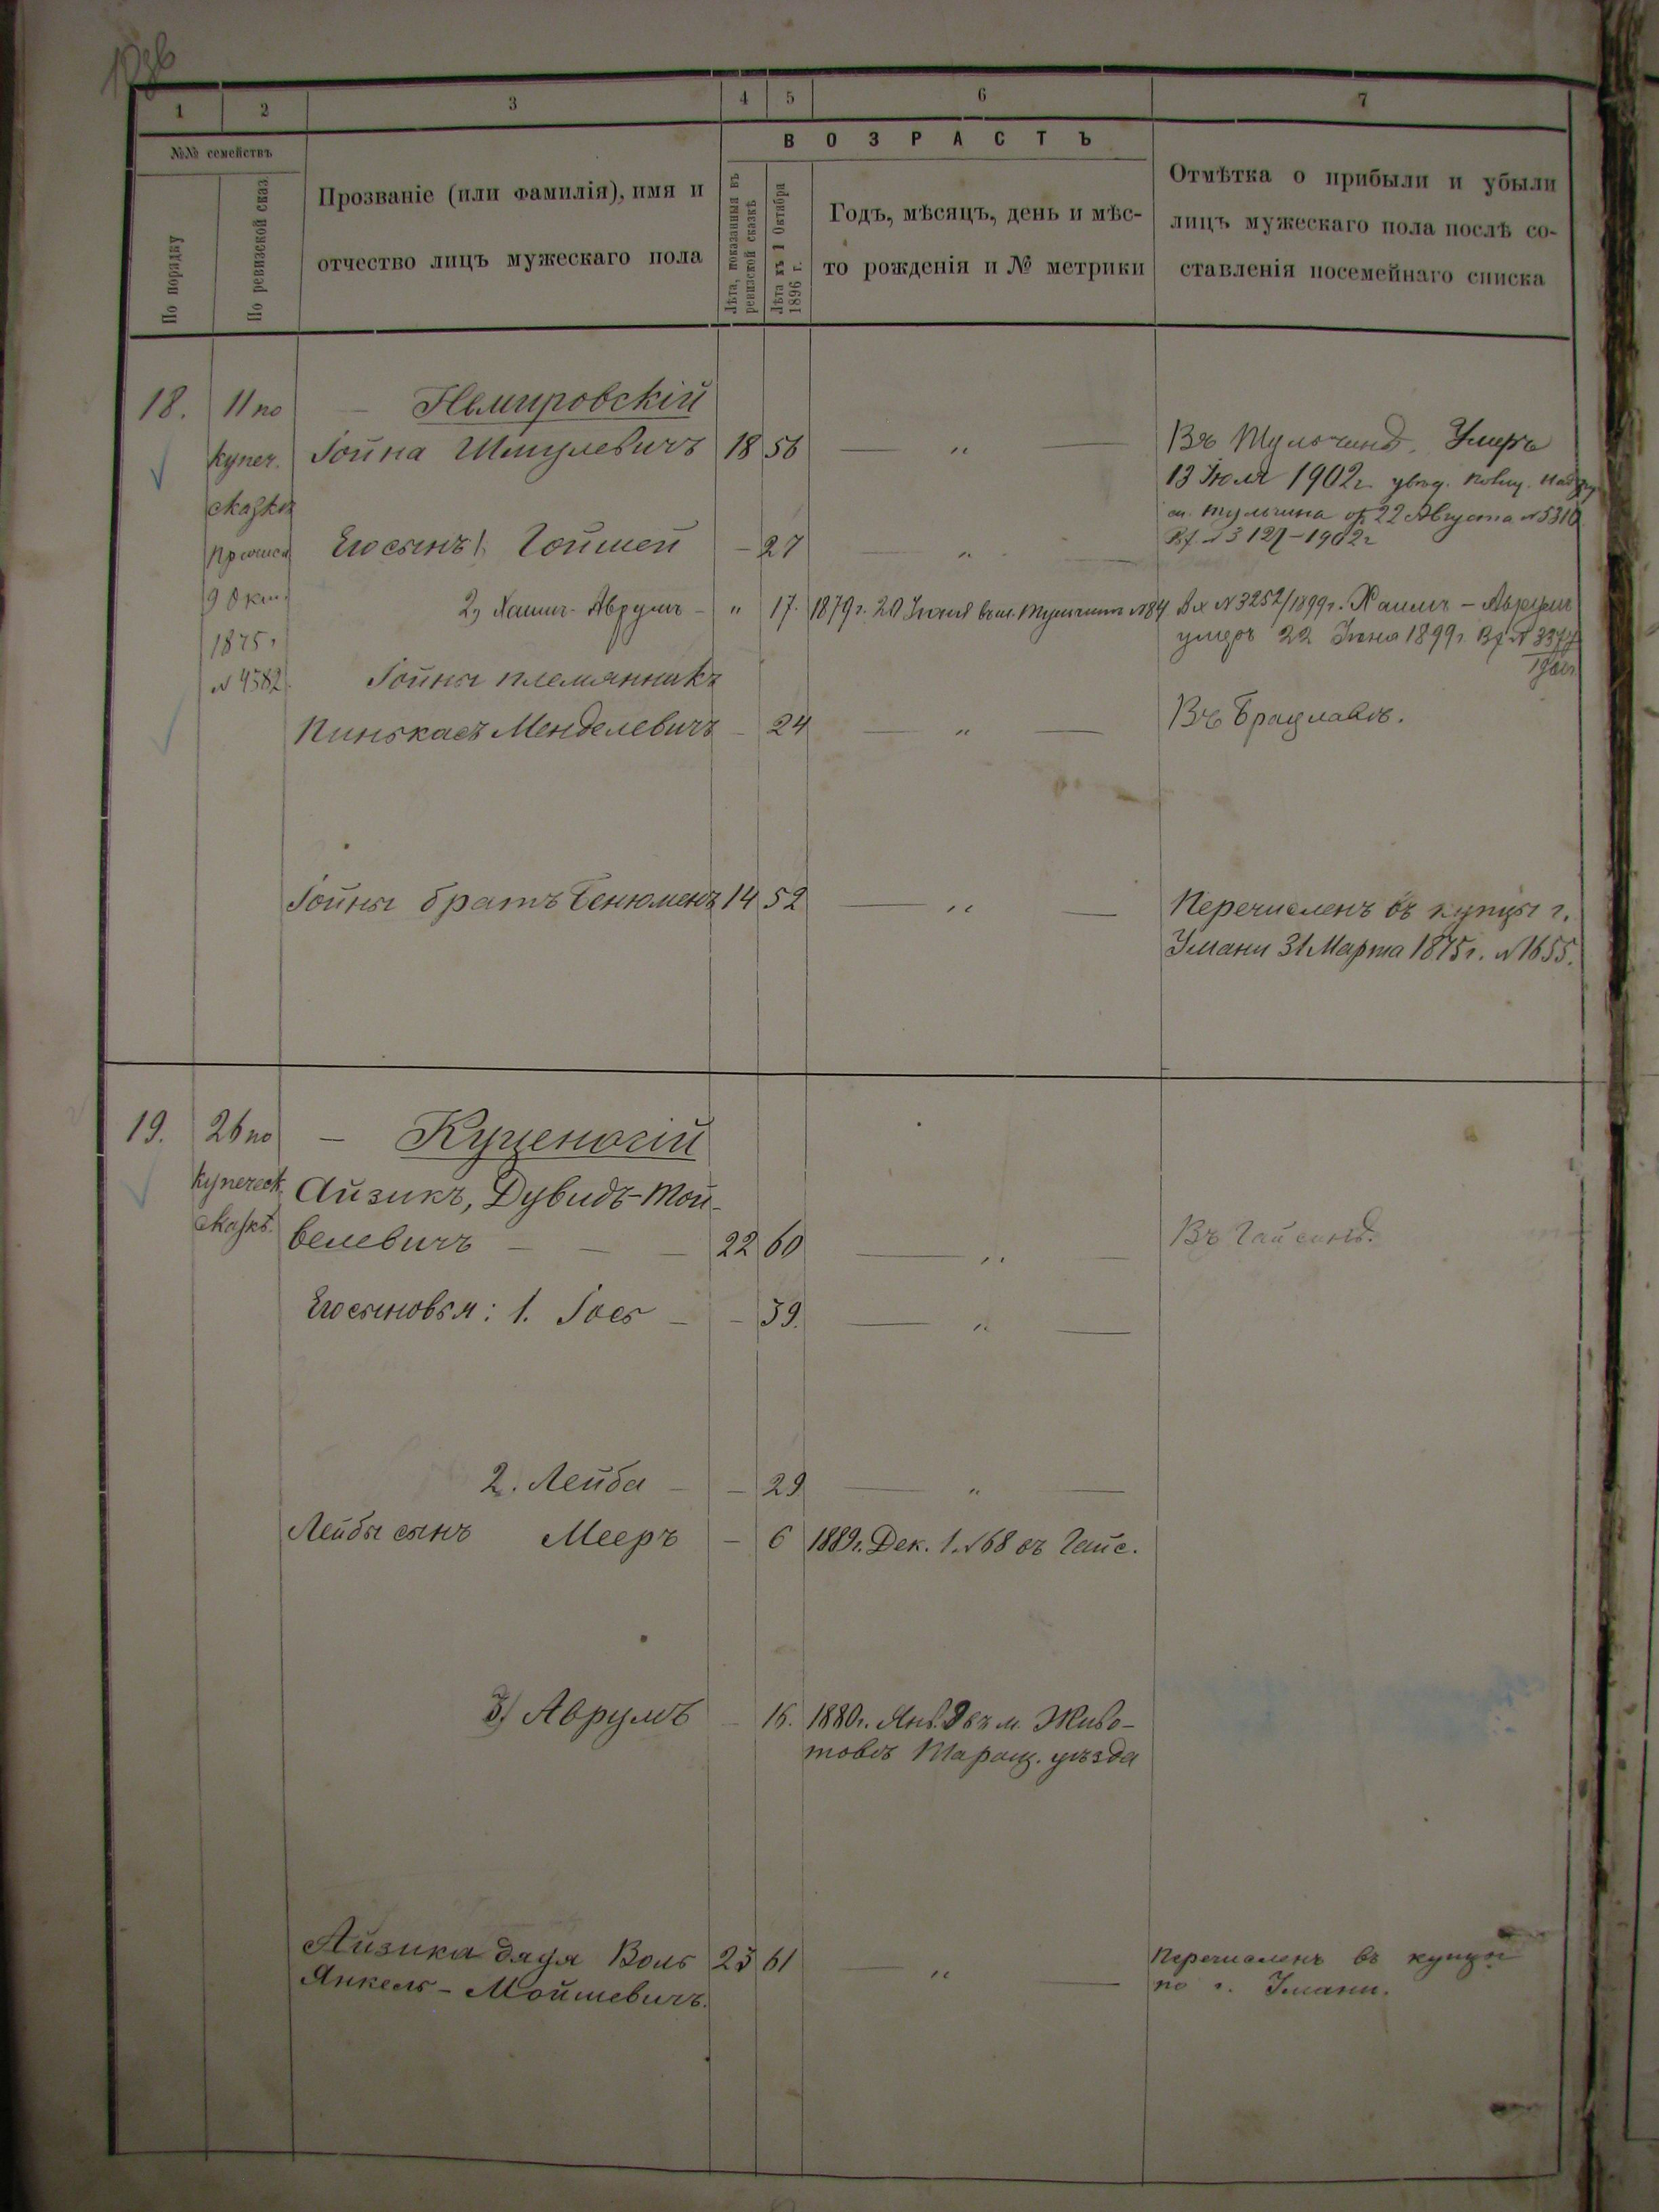 1 2 3 4 5 6 7
№№ семействъ
По порядку
По ревизской сказ.
Прозваніе (или фамилія), имя и
отчество лицъ мужескаго пола
ВОЗРАСТЪ
Лѣта, показанныя въ
ревизской сказкѣ
Лѣта къ 1 Октября
1896 г.
Годъ, мѣсяцъ, день и мѣс-
то рожденія и № метрики
Отмѣтка о прибыли и убыли
лицъ мужескаго пола послѣ со-
ставленія посемейнаго списка
18. 11 по
купеч.
сказкѣ
9 Окт.
1875 г
№ 4382.
Немировскій
Іойна Шмулевичъ 18 56 — " —
Въ Тульчинѣ. Умеръ
13 Іюля 1902 г.
м. Тульчина 22 Августа № 5310
1902 г
Его сынъ 1. Гоймей - 27 — " —
2, Хаимъ-Аврумъ - " 17. 1879 г. 20 Іюня въ м. Тульчинѣ №84
Вх №3252/1899 г. Хаимъ - Аврумъ
умеръ 22 Іюня 1899 г.
Іойны племянникъ
Пинькасъ Менделевичъ - 24 — " —
Въ Брацлавѣ.
Іойны братъ Бенюменъ 14 52 — " —
Перечисленъ въ купцы г.
Умани 31 Марта 1875 г. № 1655.
19. 26 по
купеческ.
сказкѣ.
— Куценогій
Айзикъ, Дувидъ-Мой-
велевичъ — — — 22 60 — " —
Въ Гайсинѣ.
Его сыновья: 1. Іось - - 39. — " —
2. Лейба - - 29 — " —
Лейбы сынъ Мееръ - 6 1889 г. Дек. 1. №68 въ Гайс.
3) Аврумъ - 16. 1880 г. Янв. 8 въ м. Живо-
товѣ Таращ. уѣзда
Айзика дядя Воль 23 61 — " —
Янкель - Мойшевичъ.
Перечисленъ въ купцы
по г. Умани.